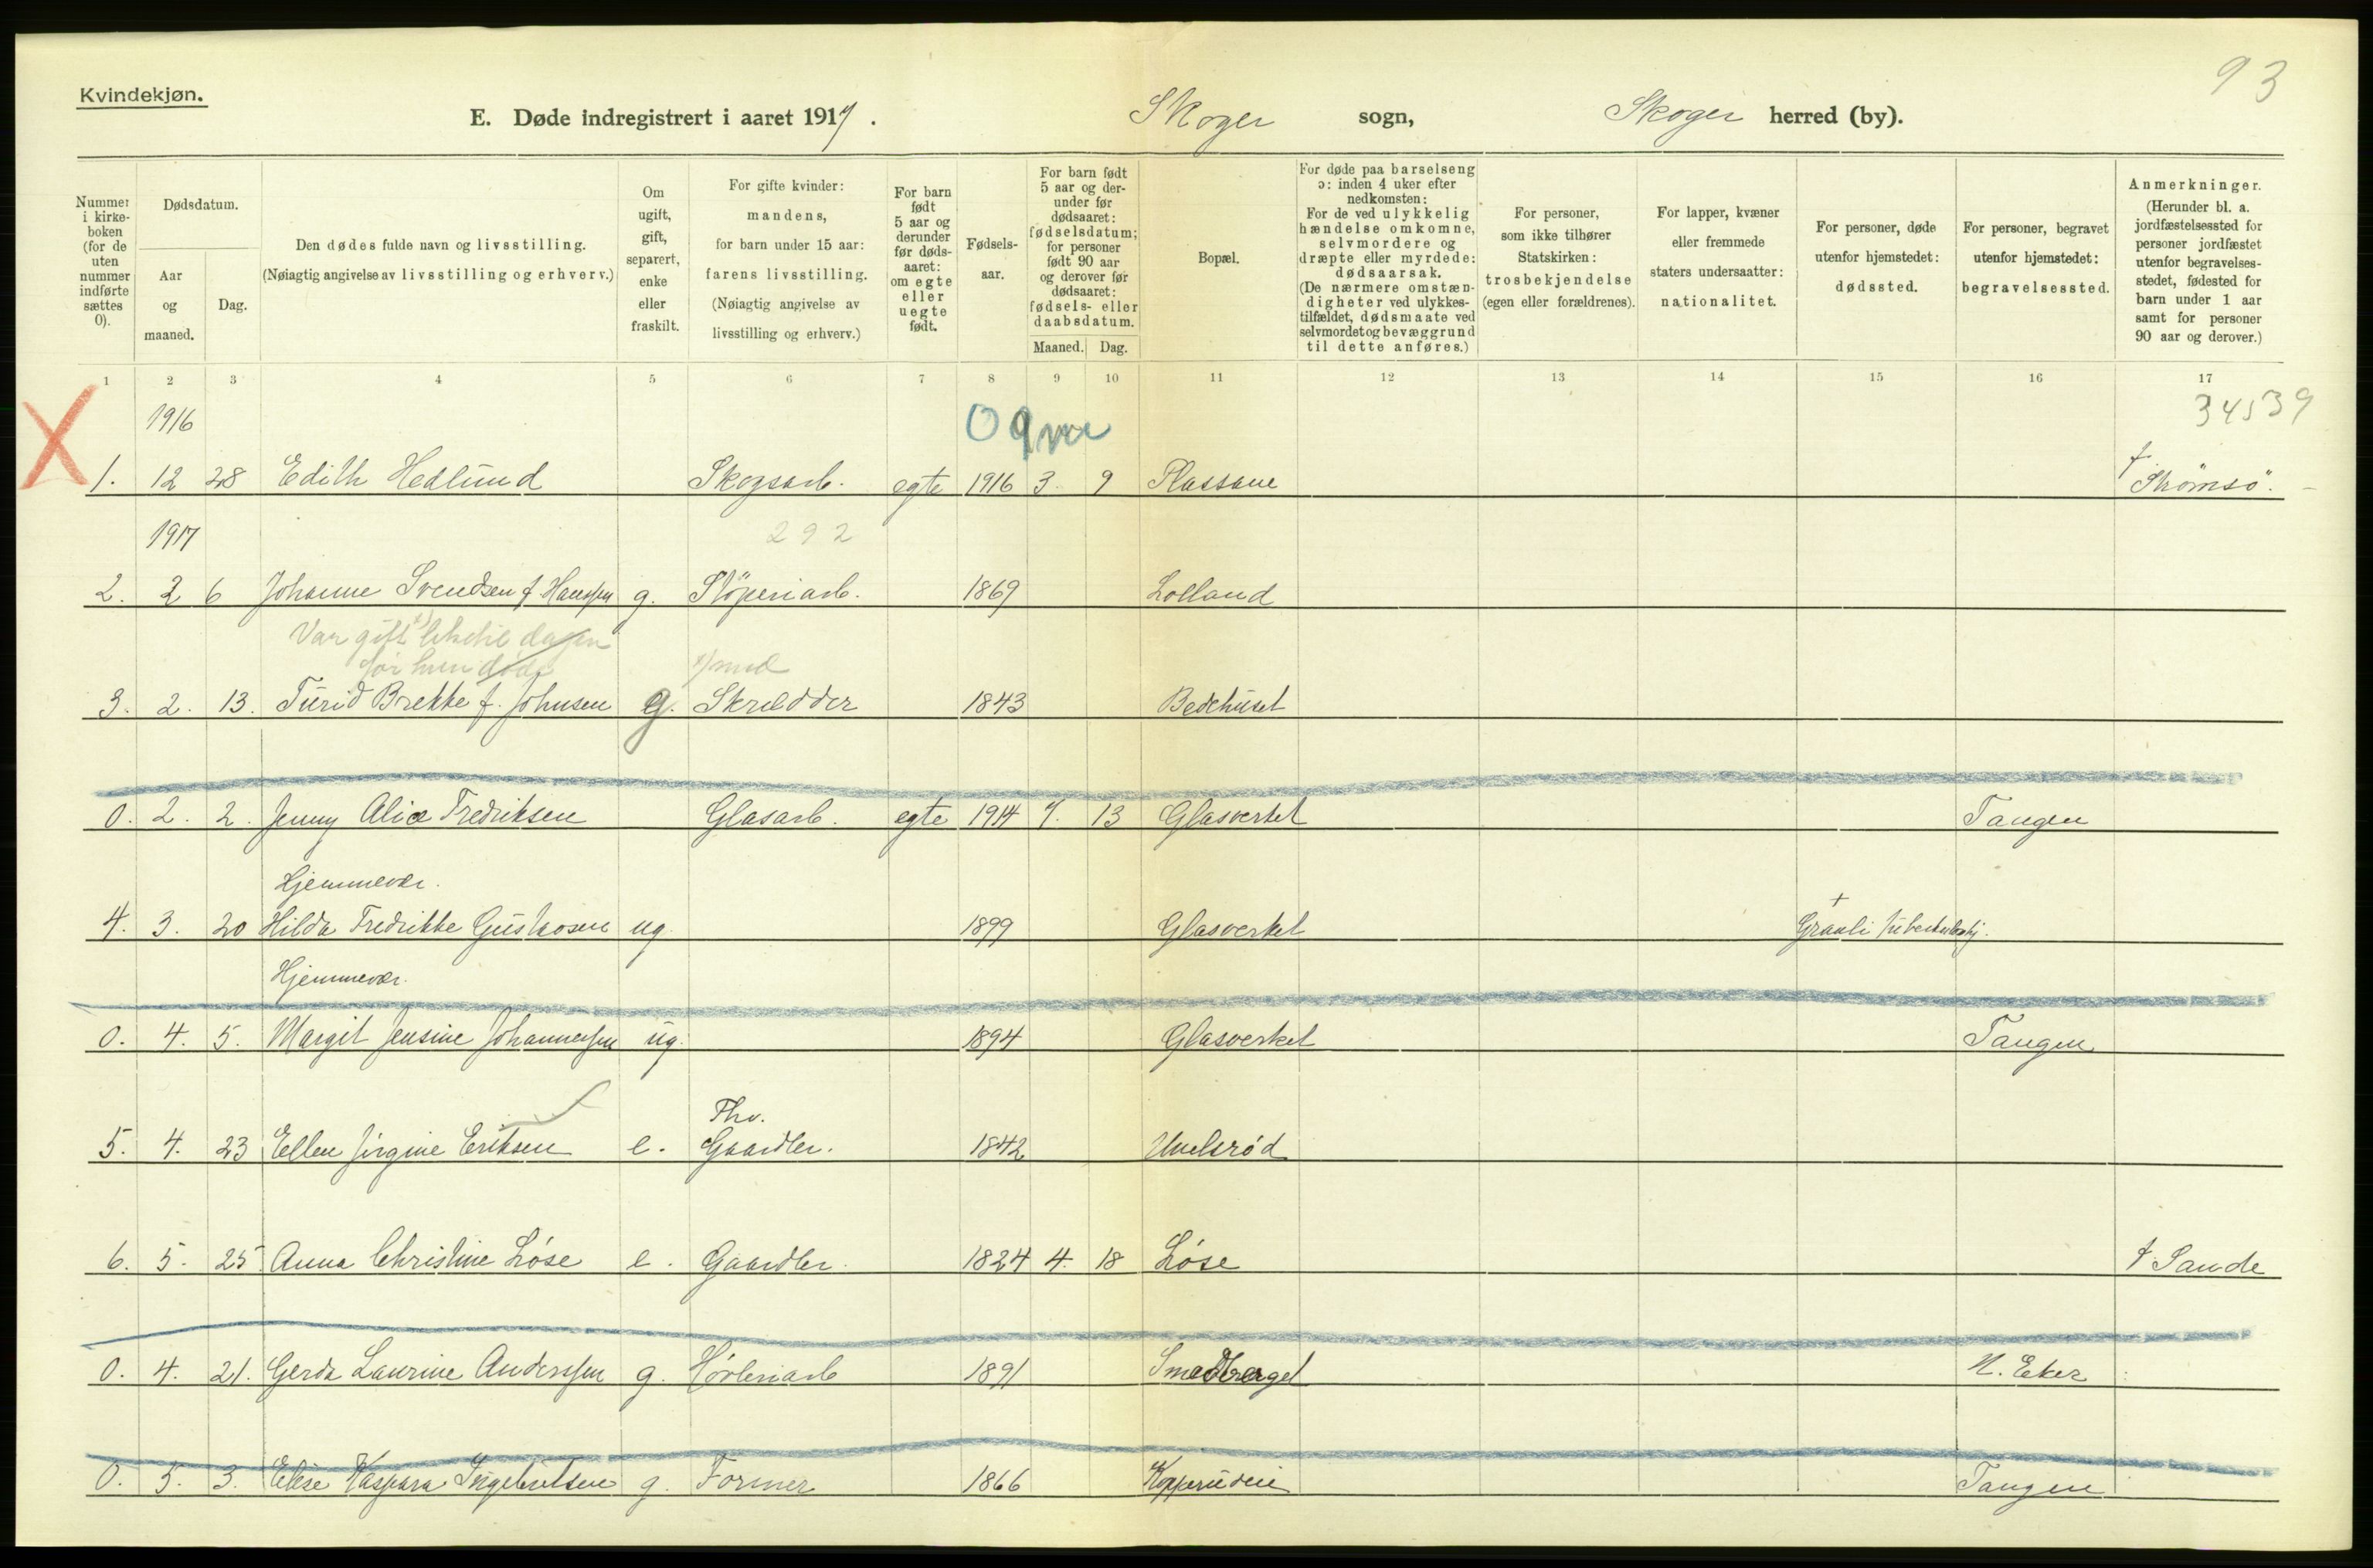 93
Kvindekjøn.
E. Døde indregistrert i aaret 1917. Skoger sogn, Skoger herred (by).
Nummer i kirkeboken (for de uten nummer indførte sættes 0).
Dødsdatum.
Aar og maaned.
Dag.
Den dødes fulde navn og livsstilling.
(Nøiagtig angivelse av livsstilling og erhverv.)
Om ugift, gift, separert, enke eller fraskilt.
For gifte kvinder: mandens, for barn under 15 aar: farens livsstilling. (Nøiagtig angivelse av livsstilling og erhverv.)
For barn født 5 aar og derunder før dødsaaret: om egte eller uegte født.
Fødselsaar.
For barn født 5 aar og derunder før dødsaaret: fødselsdatum; for personer født 90 aar og derover før dødsaaret: fødsels- eller daabsdatum.
Maaned. Dag.
Bopæl.
For døde paa barselseng ɔ: inden 4 uker efter nedkomsten: For de ved ulykkelig hændelse omkomne, selvmordere og dræpte eller myrdede: dødsaarsak. (De nærmere omstændigheter ved ulykkestilfældet, dødsmaate ved selvmordet og bevæggrund til dette anføres.)
For personer, som ikke tilhører Statskirken: trosbekjendelse (egen eller forældrenes).
For lapper, kvæner eller fremmede staters undersaatter: nationalitet.
For personer, døde utenfor hjemstedet: dødssted.
For personer, begravet utenfor hjemstedet: begravelsessted.
Anmerkninger. (Herunder bl. a. jordfæstelsessted for personer jordfæstet utenfor begravelsesstedet, fødested for barn under 1 aar samt for personer 90 aar og derover.)
1 2 3 4 5 6 7 8 9 10 11 12 13 14 15 16 17
1916 34539
1. 12 28 Edith Hedlund Skogsarb. egte 1916 3. 9 Plassane f. Strömsö.
1917 292
2. 2 6 Johanne Svendsen f. Hanssen g. Stöperiarb. 1869 Lolland
Var gift like til dagen
før hun døde x) med
3. 2. 13. Turid Brekke f. Johnsen g. Skrædder 1843 Bedehuset
0. 2. 2. Jenny Alice Fredriksen Glasarb. egte 1914 7. 13 Glasverket Tangen
Hjemmevær.
4. 3. 20 Hilda Fredrikke Gustavsen ug. 1899 Glasverket Graali tuberkulosehj.
Hjemmevær.
0. 4. 5. Margit Jensine Johannessen ug. 1894 Glasverket Tangen
Fhv.
5. 4. 23 Ellen Jirgine Eriksen e. Gaardbr. 1842 Unelsrød
6. 5. 25 Anna Christine Løse e. Gaardbr. 1824 4. 18 Løse f. Sande
0. 4. 21. Gerda Laurine Anderssen g. 1891 Smedberget N. Eker
0. 5. 3. Elise Kaspara Ingebretsen g. Former 1866 Tangen